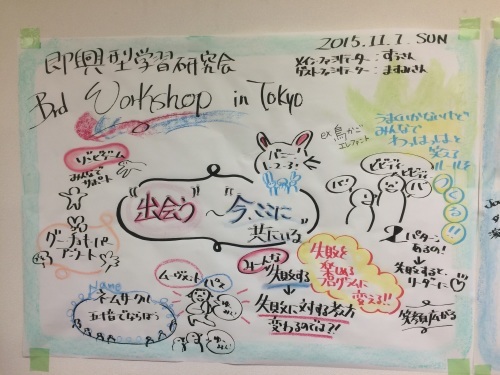 即興型学習研究会
2015.11.7. SUN
メインファシリテーター:すぅさん
ゲストファシリテーター:ますみさん
3rd Workshop in Tokyo
ゾンビゲーム
みんなで
サポート
バニー
1・2・3
ex 鳥かご
エレファント
うまくいかないけど
みんなで
わっはっはっと
笑って
ルールを
つくる!!
バ
ビビデ
ビビデ
バ
"出会う"
〜今、ここに
共にいる"
2パターン
あるの!
失敗すると、
リーダーに
笑顔広がる
みーんな
失敗する
失敗に対する考え方
変わるのでは?!
失敗を
楽しめる
ゲームに
変える!!
ムーヴメント
Name
ネームサークル
五十音でならぼう